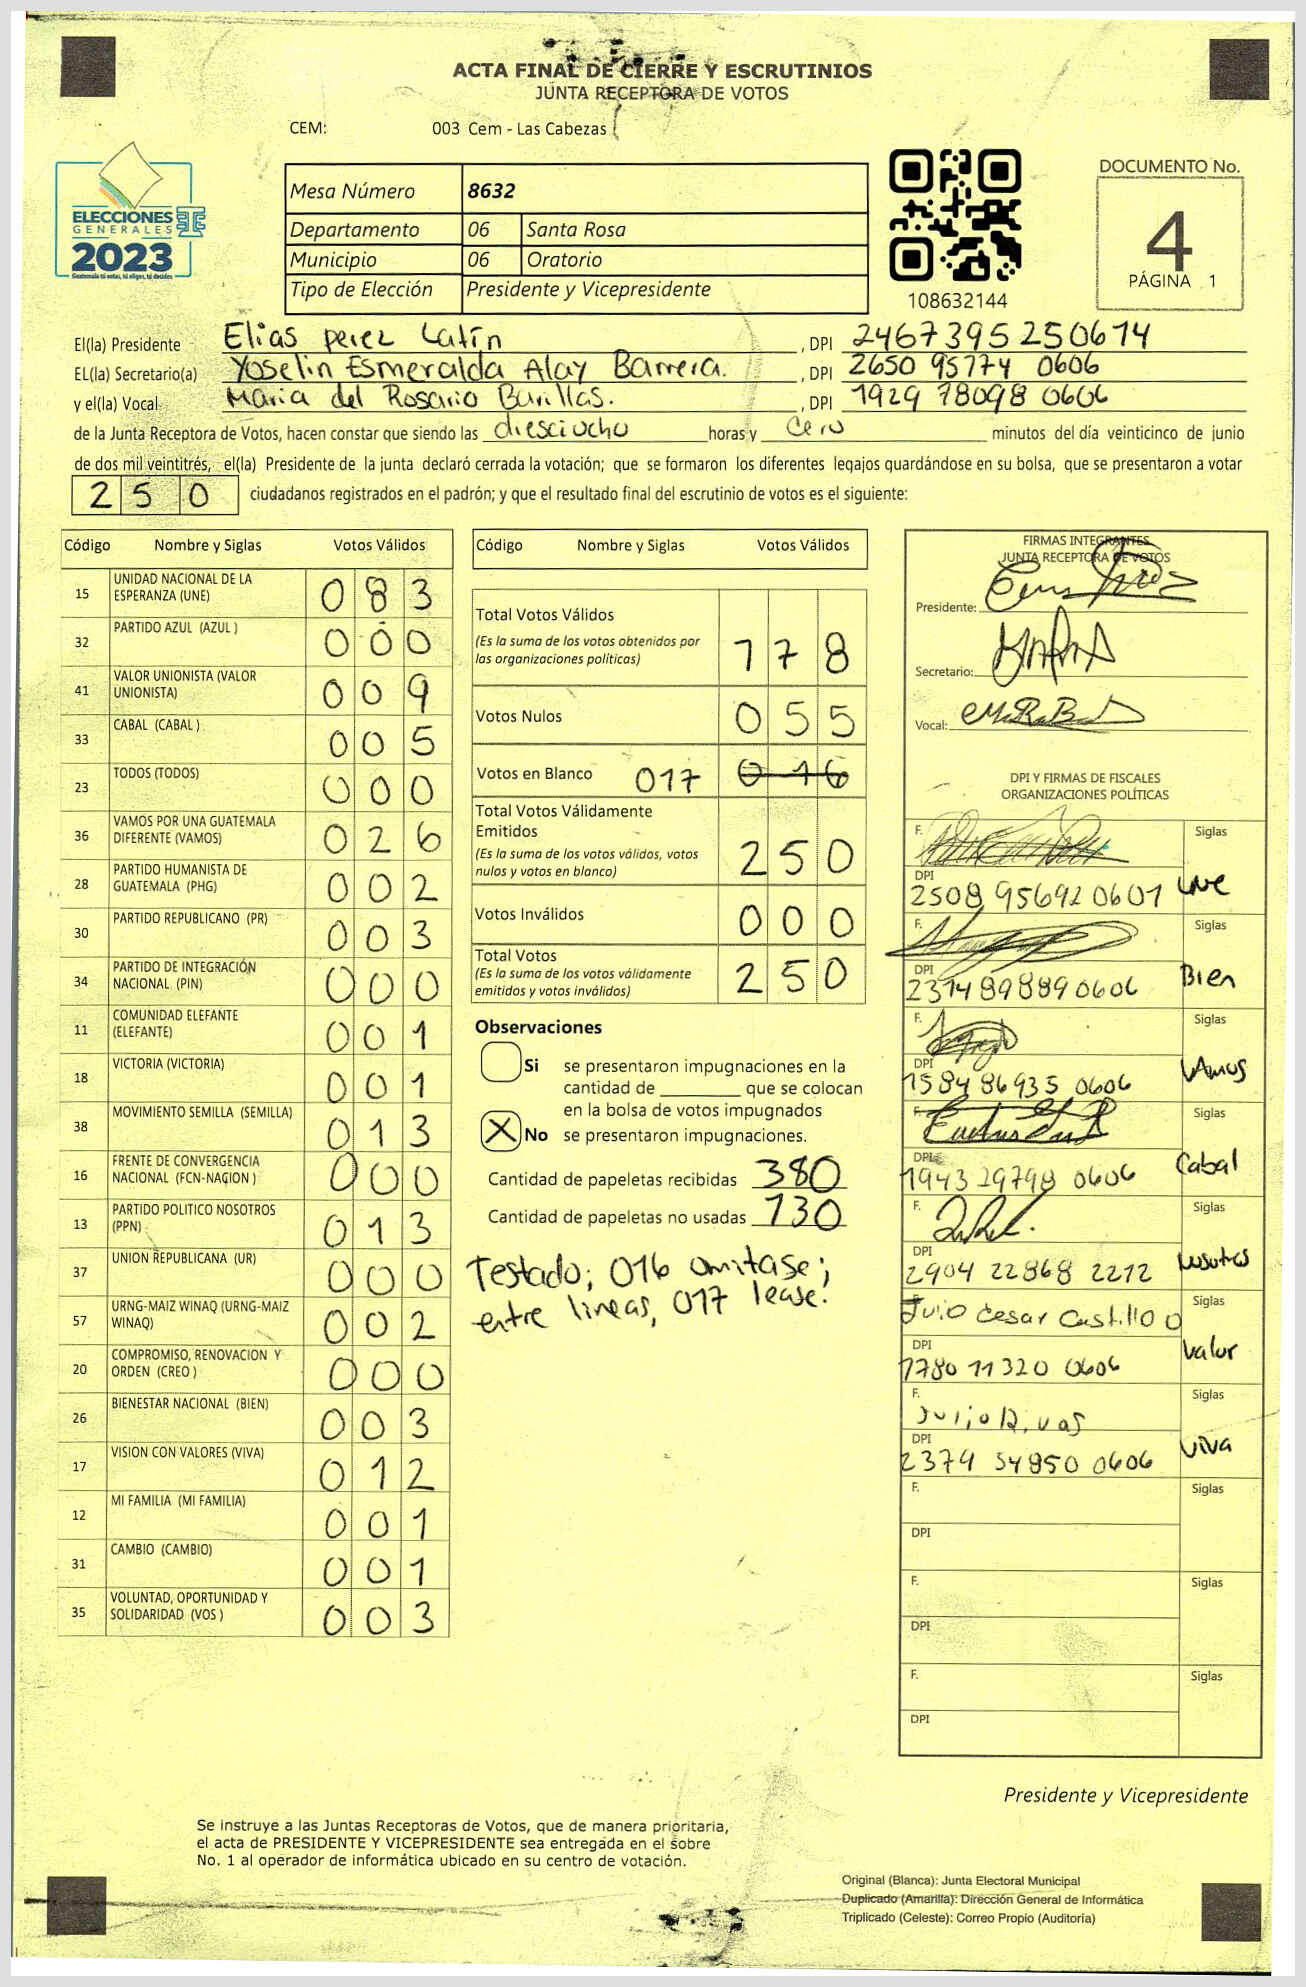 ACTA FINAL DE CIERRE Y ESCRUTINIOS
JUNTA RECEPTORA DE VOTOS
CEM: 003 Cem - Las Cabezas
ELECCIONES
GENERALES
2023
Guatemala tú votas, tú eliges, tú decides
Mesa Número 8632
Departamento 06 Santa Rosa
Municipio 06 Oratorio
Tipo de Elección Presidente y Vicepresidente
108632144
DOCUMENTO No.
4
PÁGINA 1
El(la) Presidente Elias perez Latín , DPI 2467395250614
EL(la) Secretario(a) Yoselin Esmeralda Alay Barrera. , DPI 2650 95774 0606
y el(la) Vocal Maria del Rosario Barillas. , DPI 1929 78098 0606
de la Junta Receptora de Votos, hacen constar que siendo las diesciocho horas y Cero minutos del día veinticinco de junio
de dos mil veintitrés, el(la) Presidente de la junta declaró cerrada la votación; que se formaron los diferentes legajos guardándose en su bolsa, que se presentaron a votar
250 ciudadanos registrados en el padrón; y que el resultado final del escrutinio de votos es el siguiente:
Código Nombre y Siglas Votos Válidos
15 UNIDAD NACIONAL DE LA ESPERANZA (UNE) 083
32 PARTIDO AZUL (AZUL ) 000
41 VALOR UNIONISTA (VALOR UNIONISTA) 009
33 CABAL (CABAL ) 005
23 TODOS (TODOS) 000
36 VAMOS POR UNA GUATEMALA DIFERENTE (VAMOS) 026
28 PARTIDO HUMANISTA DE GUATEMALA (PHG) 002
30 PARTIDO REPUBLICANO (PR) 003
34 PARTIDO DE INTEGRACIÓN NACIONAL (PIN) 000
11 COMUNIDAD ELEFANTE (ELEFANTE) 001
18 VICTORIA (VICTORIA) 001
38 MOVIMIENTO SEMILLA (SEMILLA) 013
16 FRENTE DE CONVERGENCIA NACIONAL (FCN-NACION ) 000
13 PARTIDO POLITICO NOSOTROS (PPN) 013
37 UNION REPUBLICANA (UR) 000
57 URNG-MAIZ WINAQ (URNG-MAIZ WINAQ) 002
20 COMPROMISO, RENOVACION Y ORDEN (CREO ) 000
26 BIENESTAR NACIONAL (BIEN) 003
17 VISION CON VALORES (VIVA) 012
12 MI FAMILIA (MI FAMILIA) 001
31 CAMBIO (CAMBIO) 001
35 VOLUNTAD, OPORTUNIDAD Y SOLIDARIDAD (VOS ) 003
Código Nombre y Siglas Votos Válidos
Total Votos Válidos 178
(Es la suma de los votos obtenidos por
las organizaciones políticas)
Votos Nulos 055
Votos en Blanco 017 016
Total Votos Válidamente
Emitidos 250
(Es la suma de los votos válidos, votos
nulos y votos en blanco)
Votos Inválidos 000
Total Votos 250
(Es la suma de los votos válidamente
emitidos y votos inválidos)
Observaciones
Si se presentaron impugnaciones en la
cantidad de ________ que se colocan
en la bolsa de votos impugnados
X No se presentaron impugnaciones.
Cantidad de papeletas recibidas 380
Cantidad de papeletas no usadas 130
Testado; 016 omitase;
entre lineas, 017 lease.
FIRMAS INTEGRANTES
JUNTA RECEPTORA DE VOTOS
Presidente:
Secretario:
Vocal:
DPI Y FIRMAS DE FISCALES
ORGANIZACIONES POLÍTICAS
F. Siglas
DPI 2508 95692 0601 une
F. Siglas
DPI 2314898890606 Bien
F. Siglas
DPI 1584 86935 0606 VAmos
F. Siglas
DPI 1943 29798 0606 Cabal
F. Siglas
DPI 2904 22868 2212 Nosotros
Julio Cesar Castillo O Siglas
DPI 1780 11320 0606 Valor
F. Julio R. vas Siglas
DPI 2379 54850 0606 viva
F. Siglas
DPI
F. Siglas
DPI
F. Siglas
DPI
Presidente y Vicepresidente
Se instruye a las Juntas Receptoras de Votos, que de manera prioritaria,
el acta de PRESIDENTE Y VICEPRESIDENTE sea entregada en el sobre
No. 1 al operador de informática ubicado en su centro de votación.
Original (Blanca): Junta Electoral Municipal
Duplicado (Amarilla): Dirección General de Informática
Triplicado (Celeste): Correo Propio (Auditoría)